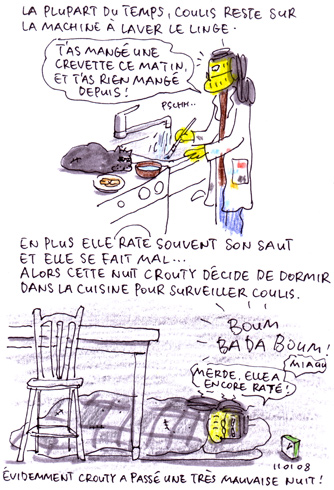 LA PLUPART DU TEMPS, COULIS RESTE SUR
LA MACHINE À LAVER LE LINGE.
T'AS MANGÉ UNE
CREVETTE CE MATIN,
ET T'AS RIEN MANGÉ
DEPUIS!
PSCHH..
EN PLUS ELLE RATE SOUVENT SON SAUT
ET ELLE SE FAIT MAL...
ALORS CETTE NUIT CROUTY DÉCIDE DE DORMIR
DANS LA CUISINE POUR SURVEILLER COULIS.
BOUM
BADABOUM!
MIAOU
MERDE, ELLE A
ENCORE RATÉ!
11 01 08
ÉVIDEMMENT CROUTY A PASSÉ UNE TRÈS MAUVAISE NUIT!